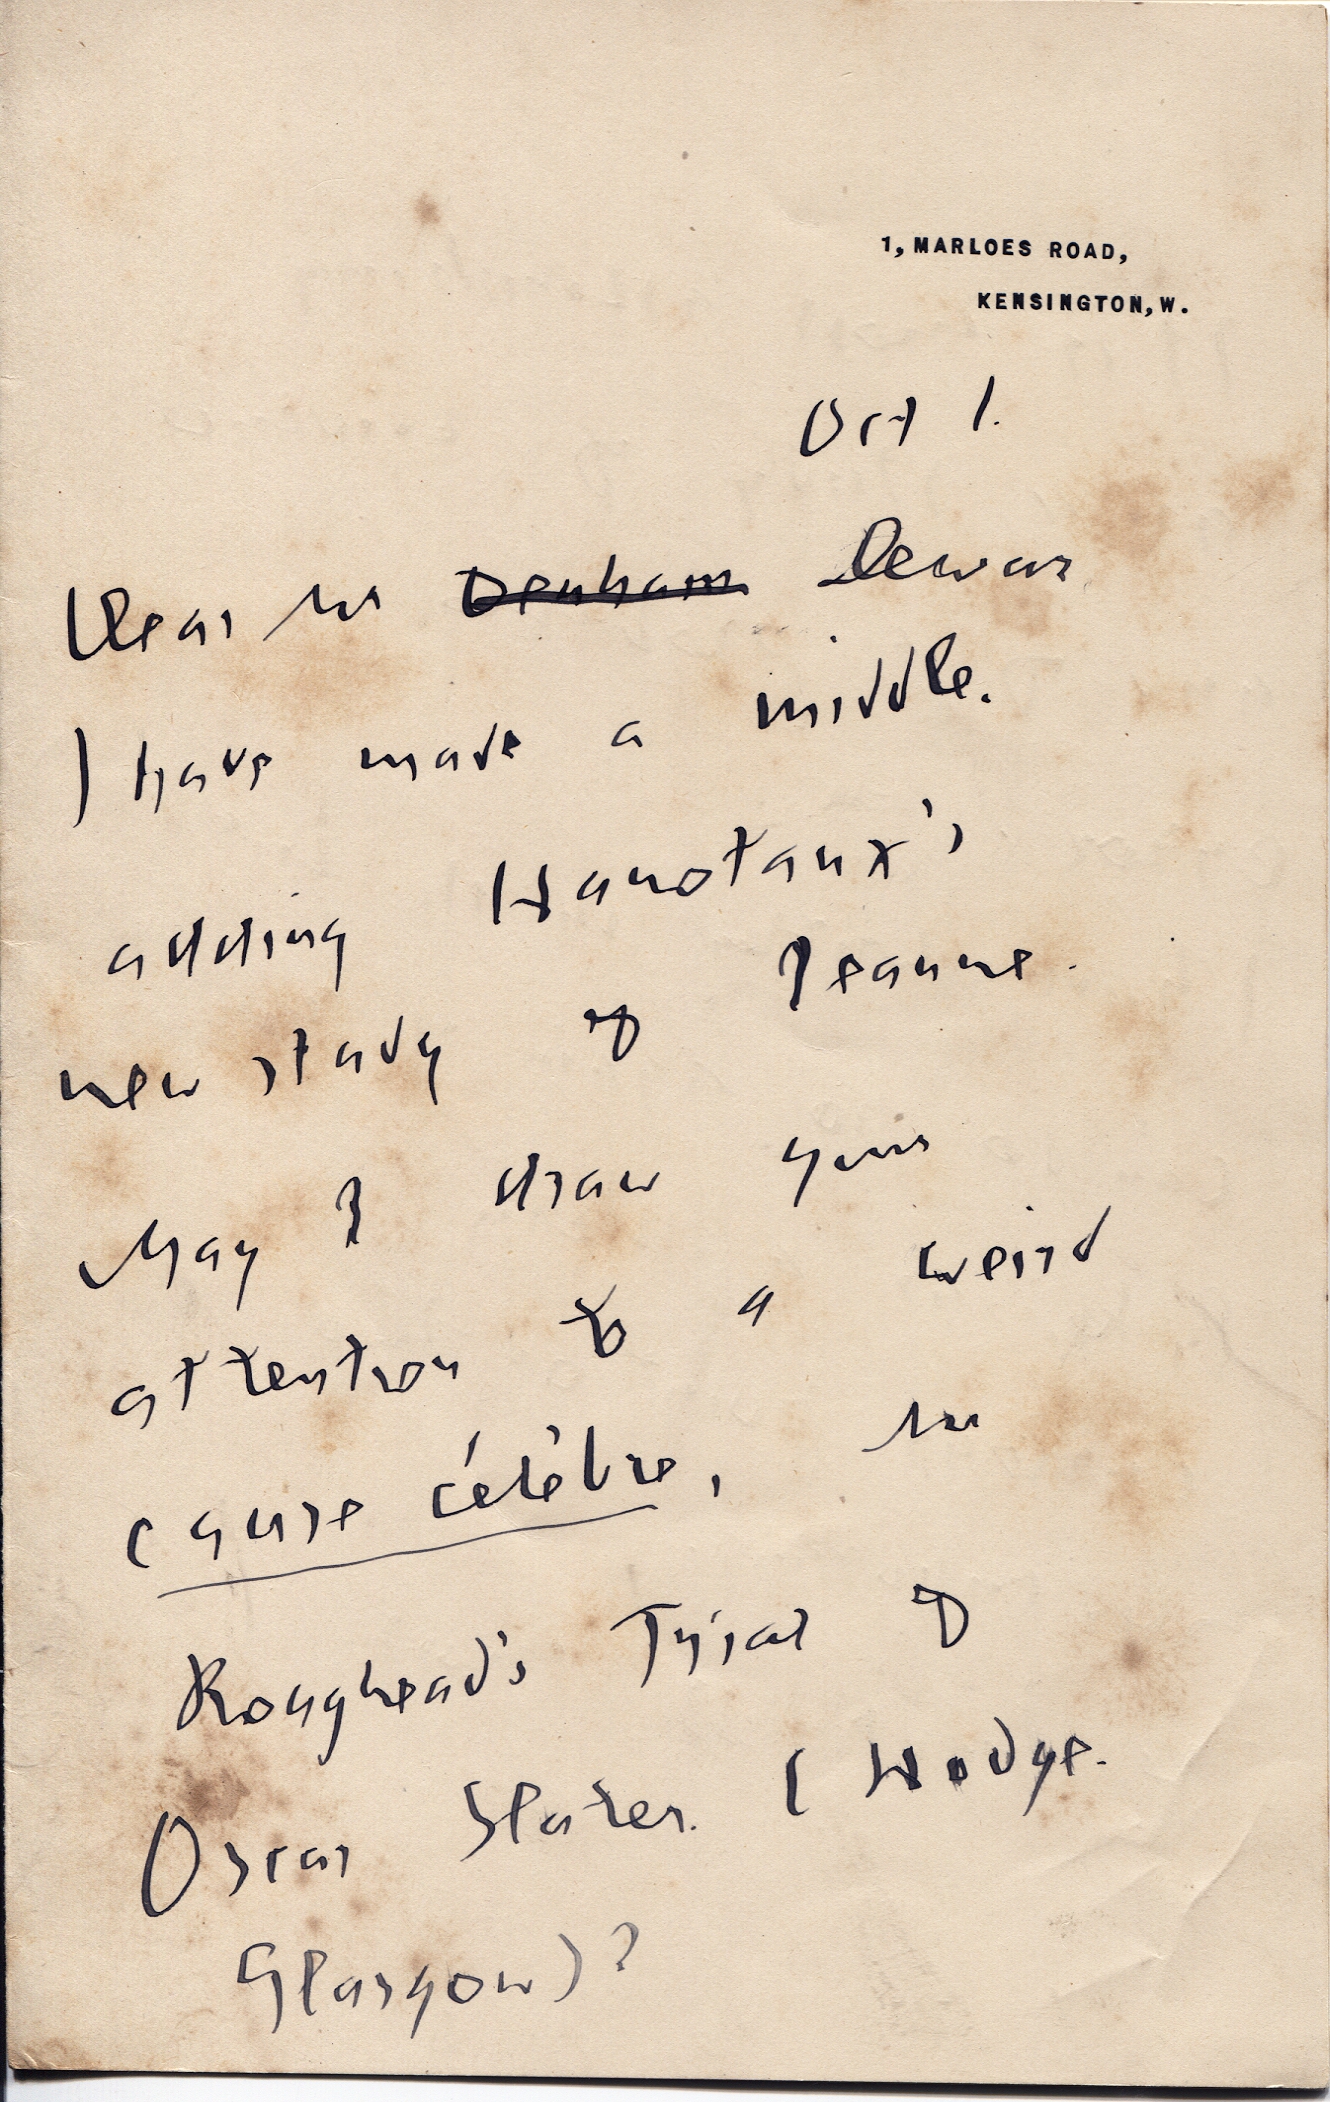 1, MARLOES ROAD,
KENSINGTON, W.
Oct 1.
Dear Mr Denham Dewar
I have made a middle.
adding Hanotaux's
new study of Jeanne.
May I draw your
attention to a weird
cause célèbre, in
Roughead's Trial of
Oscar Slater. (Hodge.
Glasgow)?